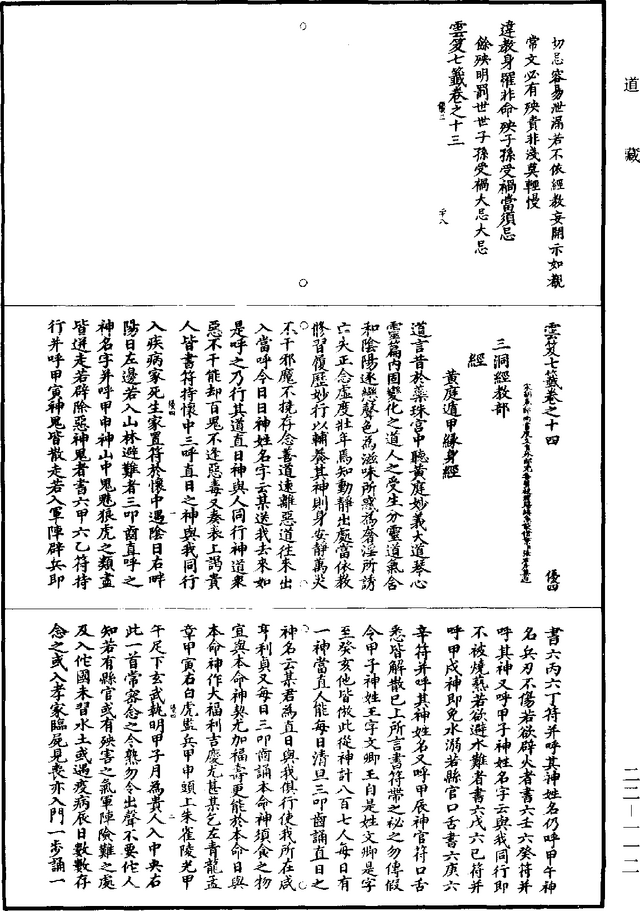 道藏
切忌容易泄漏若不依經教妄開示如觀
常文必有殃責非淺莫輕慢
違教身罹非命殃子孫受禍當須忌
餘殃明罰世世子孫受禍大忌大忌
雲笈七籤卷之十三
雲笈七籤卷之十四
優四
三洞經教部
經
黃庭遁甲緣身經
道言昔於蘂珠宮中聽黃庭妙義大道琴心
靈篇內固變化之道人之受生分靈道氣含
和陰陽逐戀聲色為滋味所惑為奢淫所誘
亡失正念虛度壯年焉知動靜出處當依教
修習履歷妙行以輔養其神則身安靜萬災
不干邪魔不撓存念善道遠離惡道往來出
入當呼今日日神姓名字云某送我去來如
是呼之乃行其道直日神與人同行神道衆
惡不干能却百鬼不逢惡毒又奏表上謁貴
人皆書符持懷中三呼直日之神與我同行
入疾病家死生家置符於懷中遇陰日右畔
陽日左邊若入山林避難者三叩齒直呼之
神名字并呼甲申神山中鬼魅狼虎之類盡
皆逆走若辟除惡神鬼者書六甲六乙符持
行并呼甲寅神鬼皆散走若入軍陣辟兵即
書六丙六丁符并呼其神姓名仍呼甲午神
名兵刃不傷若欲辟火者書六壬六癸符并
呼其神又呼甲子神姓名字云與我同行即
不被燒爇若欲避水難者書六戊六己符并
呼甲戌神即免水溺若縣官口舌書六庚六
辛符并呼其神姓名又呼甲辰神官符口舌
悉皆解散已上所言書符帶之祕之勿傳假
令甲子神姓王字文卿王自是姓文卿是字
至癸亥他皆倣此從神計八百七人每日有
一神當直人能每日清旦三叩齒誦直日之
神名云某君為直日與我俱行使我所在咸
亨利貞又每日三叩齒誦本命神須食之物
宜與本命神契尤加福壽更能於本命日與
本命神作大福利吉慶尤甚某乞左青龍孟
章甲寅右白虎監兵甲申頭上朱雀陵光甲
午足下玄武執明甲子月為貴人入中央右
此一首常密念之令熟勿令出聲不要佗人
知若有縣官或有殃害之氣軍陣險難之處
及入佗國未習水土或遇疫病辰日數數存
念之或入孝家臨屍見喪亦入門一步誦一
二二—一一二